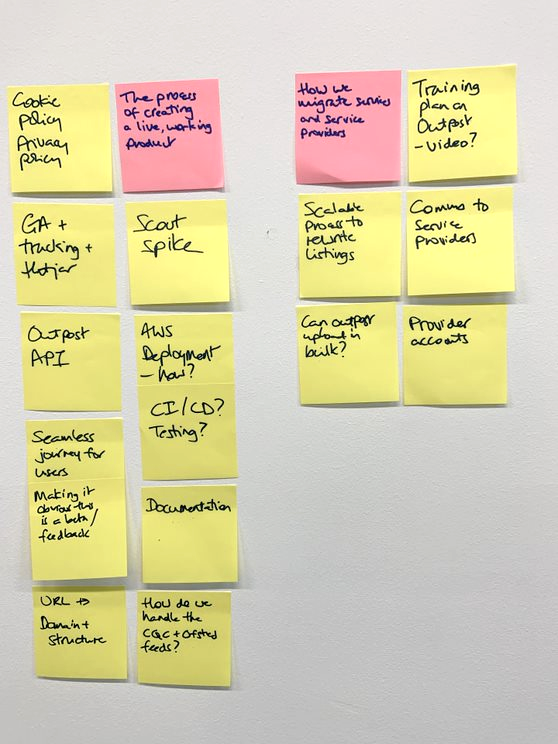 Cookie
policy
Privacy
policy
The process
of creating
a live, working
product
GA +
tracking +
Hotjar
Scout
spike
Outpost
API
AWS
Deployment
– how?
CI/CD?
Testing?
Seamless
journey for
users
Making it
obvious this
is a beta/
feedback
Documentation
URL +
Domain +
structure
How do we
handle the
CQC + Ofsted
feeds?
How we
migrate services
and service
providers
Training
plan on
Outpost
– video?
Scalable
process to
rewrite
listings
Comms to
service
providers
Can outpost
upload in
bulk?
Provider
accounts